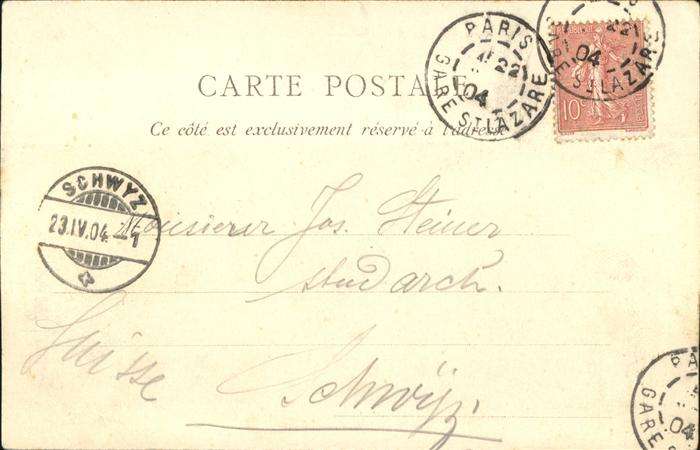 PARIS
22
04
GARE ST LAZARE
22
04
GARE ST LAZARE
10c
CARTE POSTALE
Ce côté est exclusivement réservé à l'adresse
SCHWYZ
23.IV.04.-1
Monsieur Jos. Steiner
stud arch.
Suisse
Schwÿz.
PA
04
GARE S